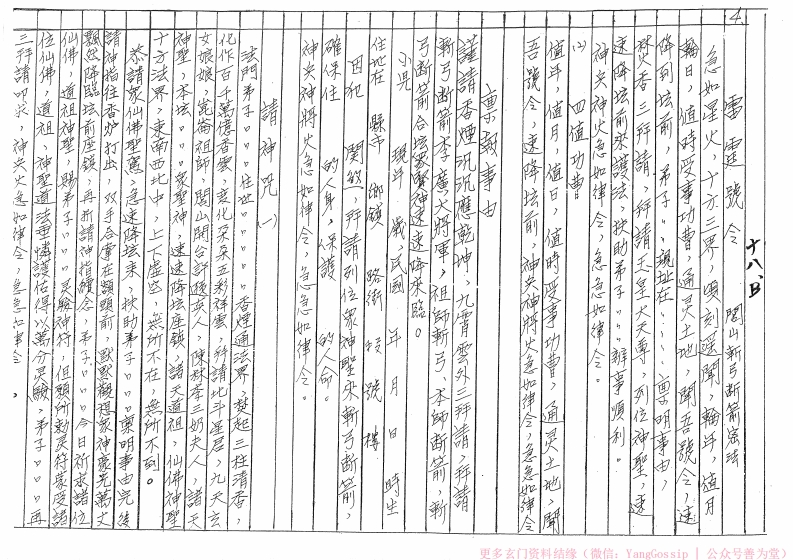 4.
雷霆號令 閭山斬弓断箭密法
十八、B
急如星火,十方三界,頃刻遥聞,輪年,值月
輪日,值時受事功曹,通灵土地,聞吾號令,速
降到坛前,弟子。。現址在。。。。稟明事由,
焚香三拜請,拜請玉皇大天尊,列位神聖,速
速降坛前來護法,扶助弟子。。辦事順利。
神兵神火急如律令,急急如律令。
(2) 四值功曹
值年,值月,值日,值時受事功曹,通灵土地,聞
吾號令,速降坛前,神兵神將火急如律令,急急如律令
稟報事由
謹請香煙沉沉應乾坤,九霄雲外三拜請,拜請
斬弓断箭李廣大將軍,祖師斬弓,本師断箭,斬
弓断箭合坛眾聖神速速降來臨。
小児 現年 歲,民國 年 月 日 時生
住地在 縣市 鄉鎮 路街 段 號 樓
因犯 関煞,拜請列位眾神聖來斬弓断箭,
確保住 的人身,保護 的人命。
神兵神將火急如律令,急急如律令。
請神咒(一)
法門弟子。。。住址。。。。香煙通法界,焚起三柱清香,
化作百千萬億香雲,变化朵朵五彩祥雲,拜請北斗星君,九天玄
女娘娘,崑崙祖師,閭山開台許遜真人,陳林李三奶夫人,諸天
神聖,本坛。。。眾聖神,速速降坛座鎮,諸天道祖,仙佛神聖
十方法界,東南西北中,上下虛空,無所不在,無所不到。
恭請眾仙佛聖駕,急速降坛來,扶助弟子。。。。稟明事由完後
請神指往香炉打出,双手合掌在額頭前,默默観想眾神毫光萬丈
飄然降臨坛前座鎮,再祈請神指礶念,弟子。。。。今日祈求諸位
仙佛,道祖神聖,賜弟子。。。。灵驗神符,但願所勅灵符蒙受諸
位仙佛,道祖,神聖道法垂憐護佑得以萬分灵驗,弟子。。。。再
三拜請叩求,神兵火急如律令,急急如律令。
更多玄门资料结缘(微信:YangGossip | 公众号善为堂)